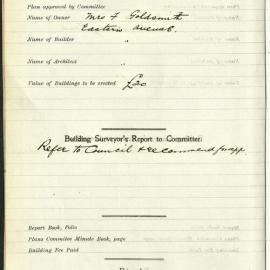 Plan approved by Committee
Name of Owner Mrs F Goldsmith
Eastern Avenue.
Name of Builder "
Name of Architect "
Value of Buildings to be erected £20
Building Surveyor's Report to Committee:
Refer to Council & recommend for app.
Report Book, Folio
Plans Committee Minute Book, page
Building Fee Paid